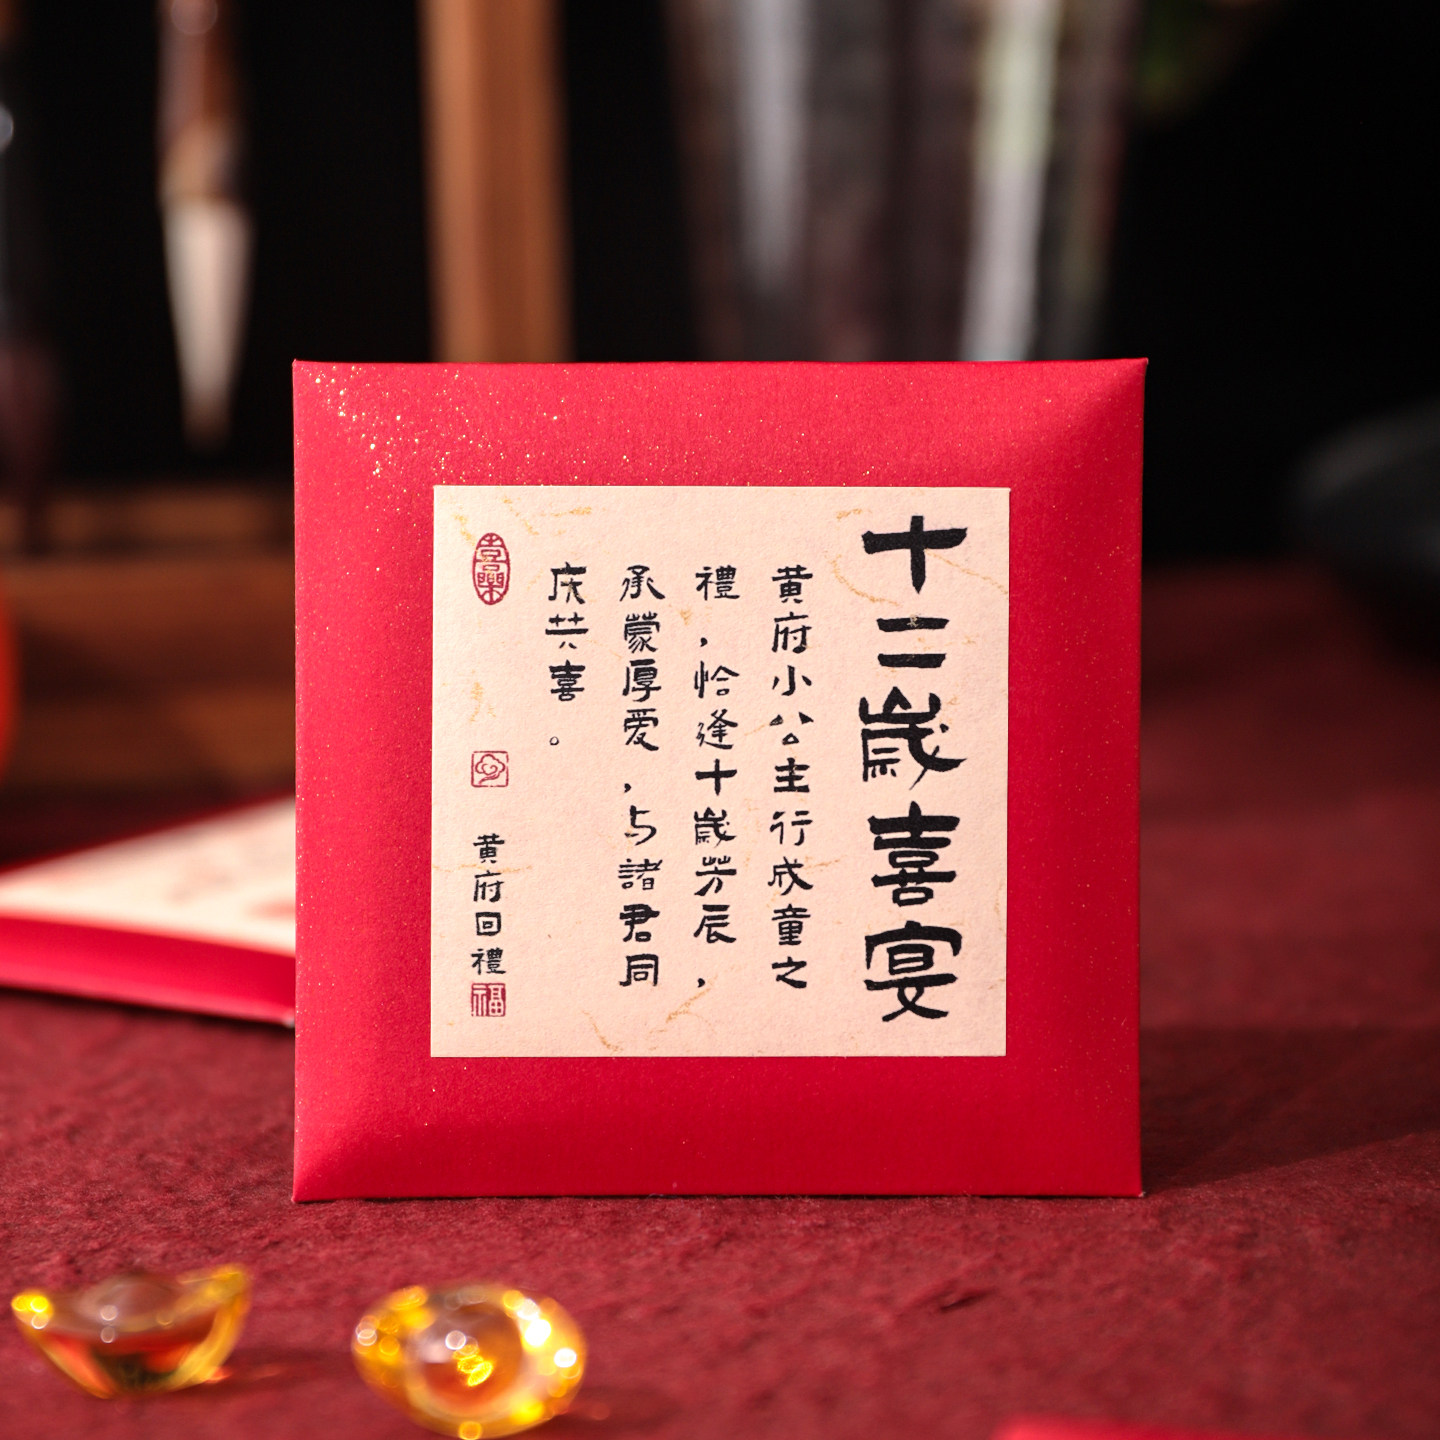 十二歲喜宴
黄府小公主行成童之
禮，恰逢十歲芳辰，
承蒙厚爱，与諸君同
庆共喜。
喜樂
黄府回禮
福